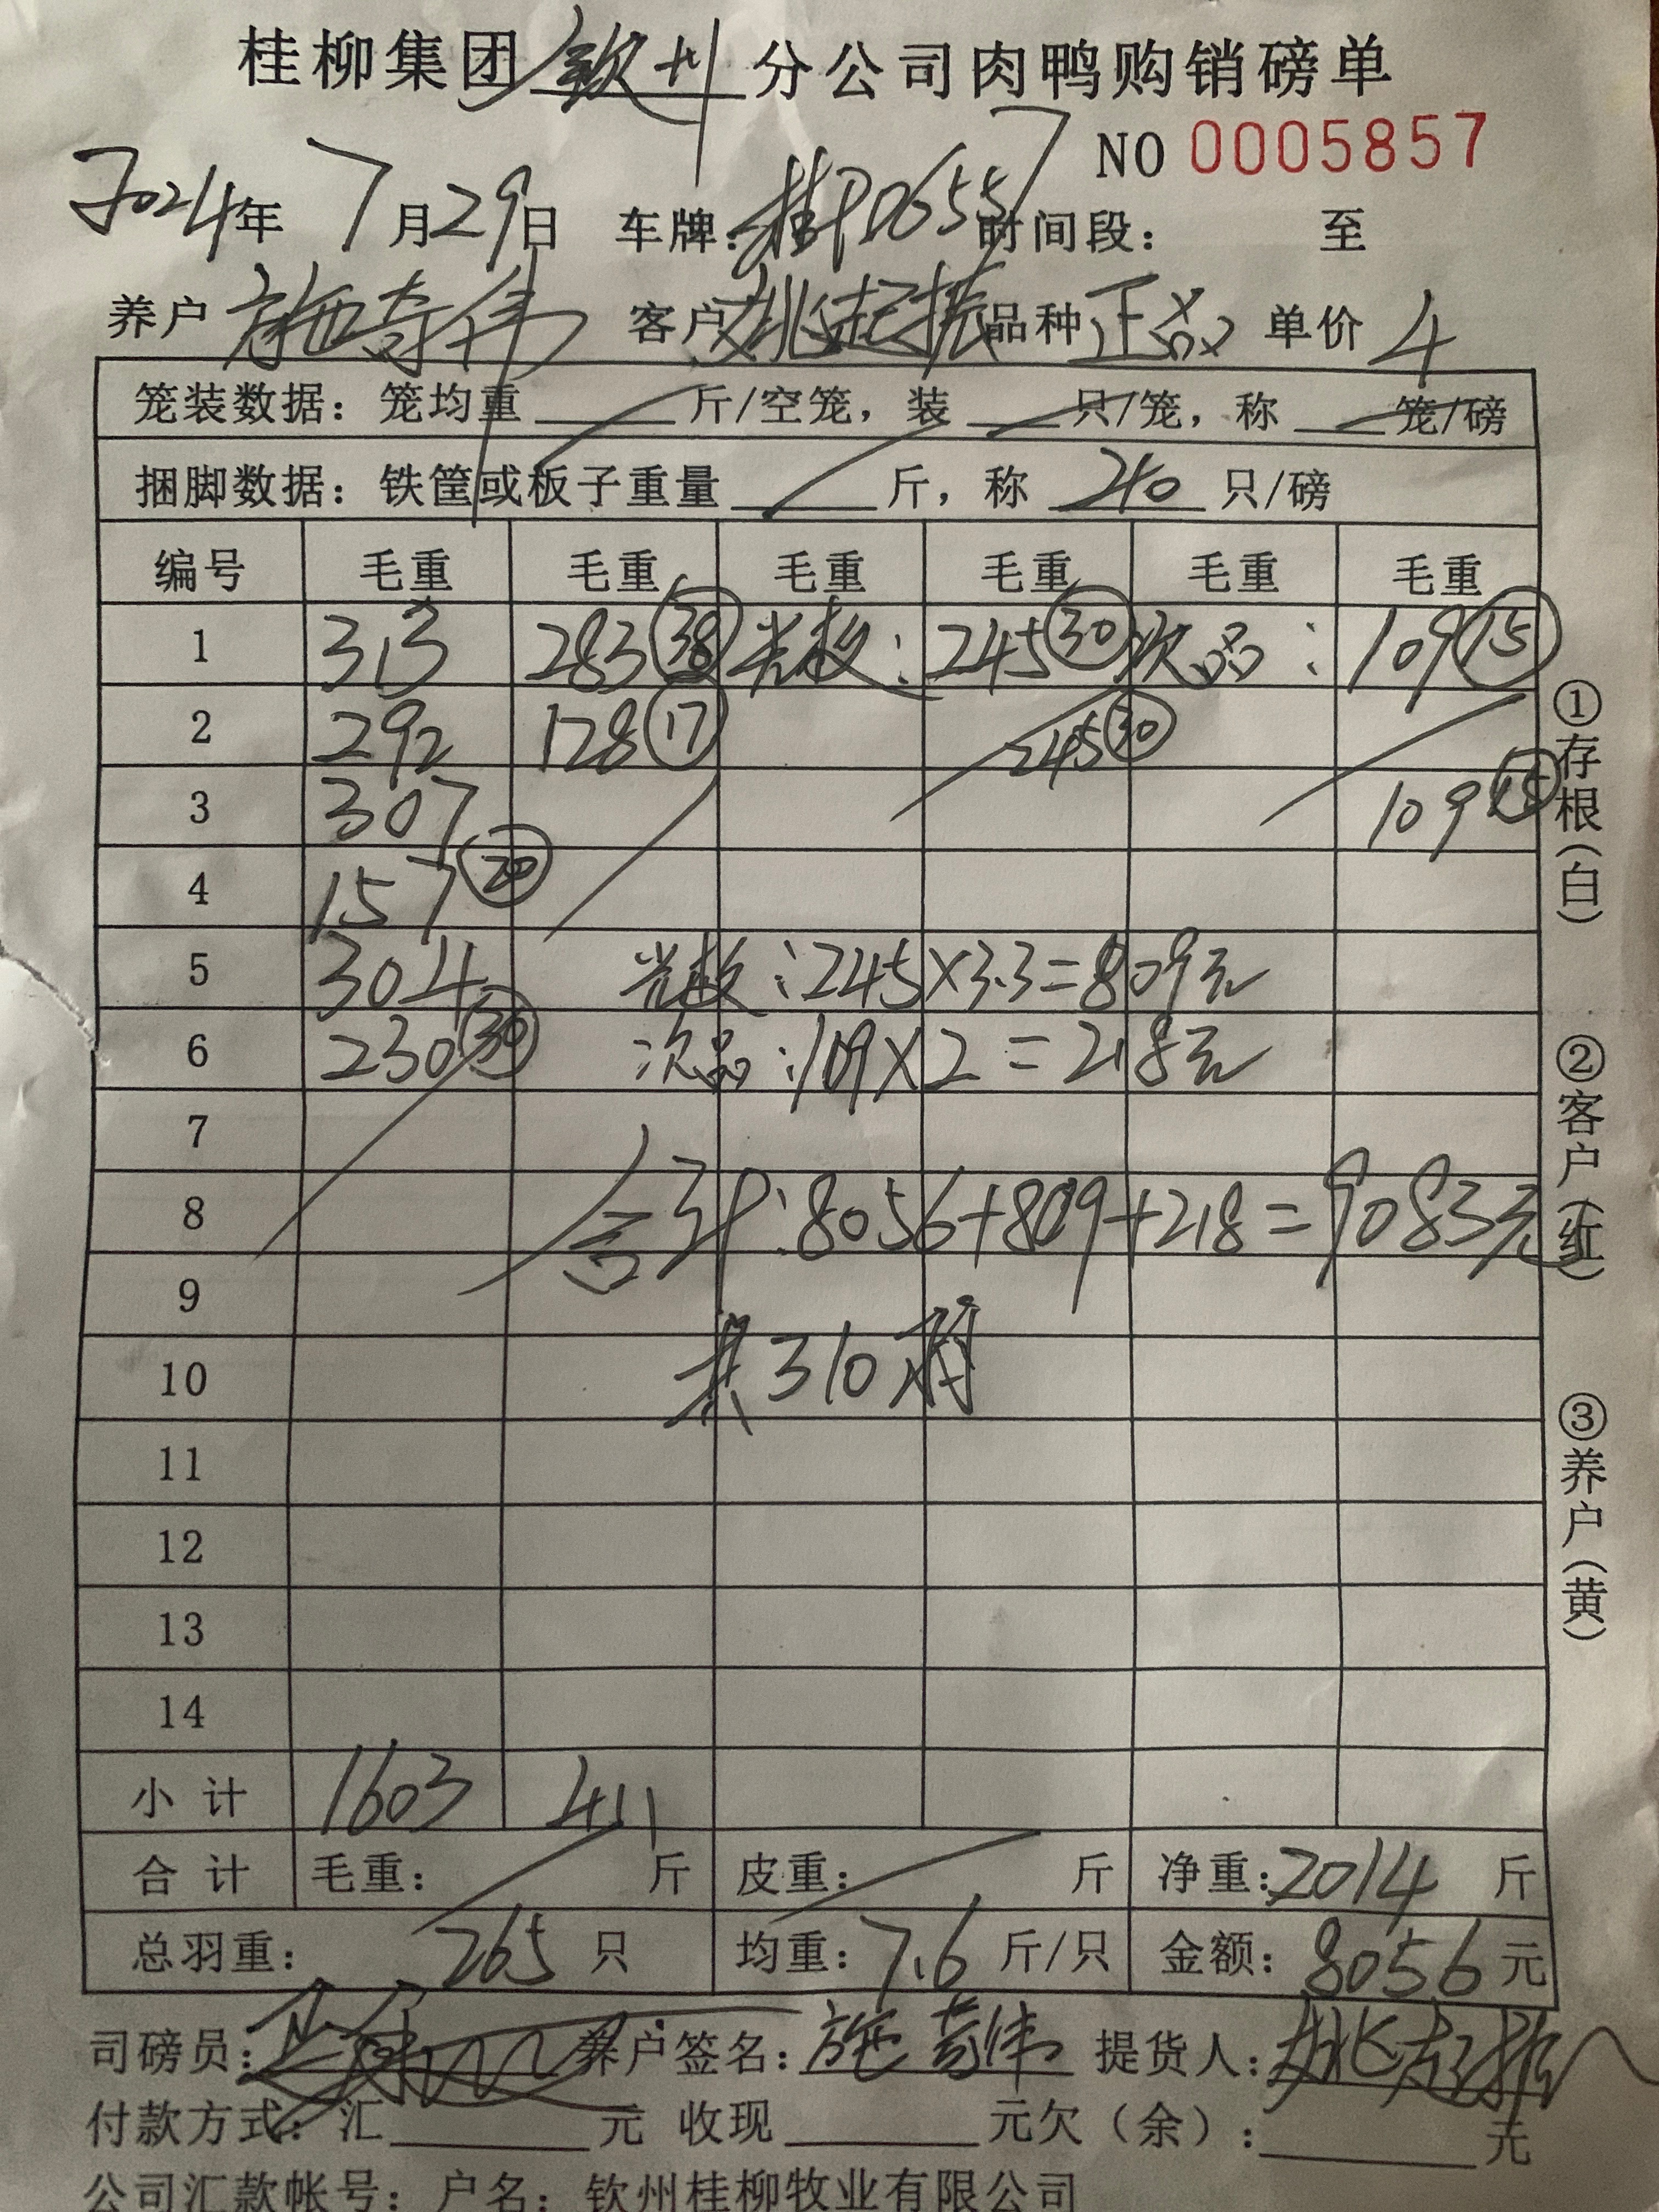 桂柳集团 钦州 分公司肉鸭购销磅单
NO 0005857
2024年 7月29日 车牌：桂PD6557 时间段： 至
养户 施奇伟 客户 姚起振 品种 正品 单价 4
笼装数据：笼均重 斤/空笼，装 只/笼，称 笼/磅
捆脚数据：铁筐或板子重量 斤，称 240 只/磅
编号 毛重 毛重 毛重 毛重 毛重 毛重
1 313 283 38 光板： 245 30 次品： 109 15
2 292 128 17 245 30
3 307 109 15
4 157 20
5 304 光板：245×3.3=809元
6 230 30 次品：109×2=218元
7
8 合计：8056+809+218=9083元
9
10 共310羽
11
12
13
14
小计 1603 411
合计 毛重： 斤 皮重： 斤 净重：2014 斤
总羽重： 265 只 均重：7.6 斤/只 金额：8056元
司磅员： 养户签名：施奇伟 提货人：姚起振
付款方式：汇 元 收现 元欠（余）： 元
公司汇款帐号：户名：钦州桂柳牧业有限公司
①存根（白） ②客户（红） ③养户（黄）